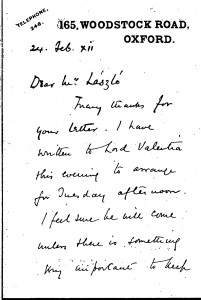 TELEPHONE,
346.
165, WOODSTOCK ROAD,
OXFORD.
24. Feb. xii
Dear Mr László
Many thanks for
your letter. I have
written to Lord Valentia
this evening to arrange
for Tuesday afternoon.
I feel sure he will come
unless there is something
very important to keep